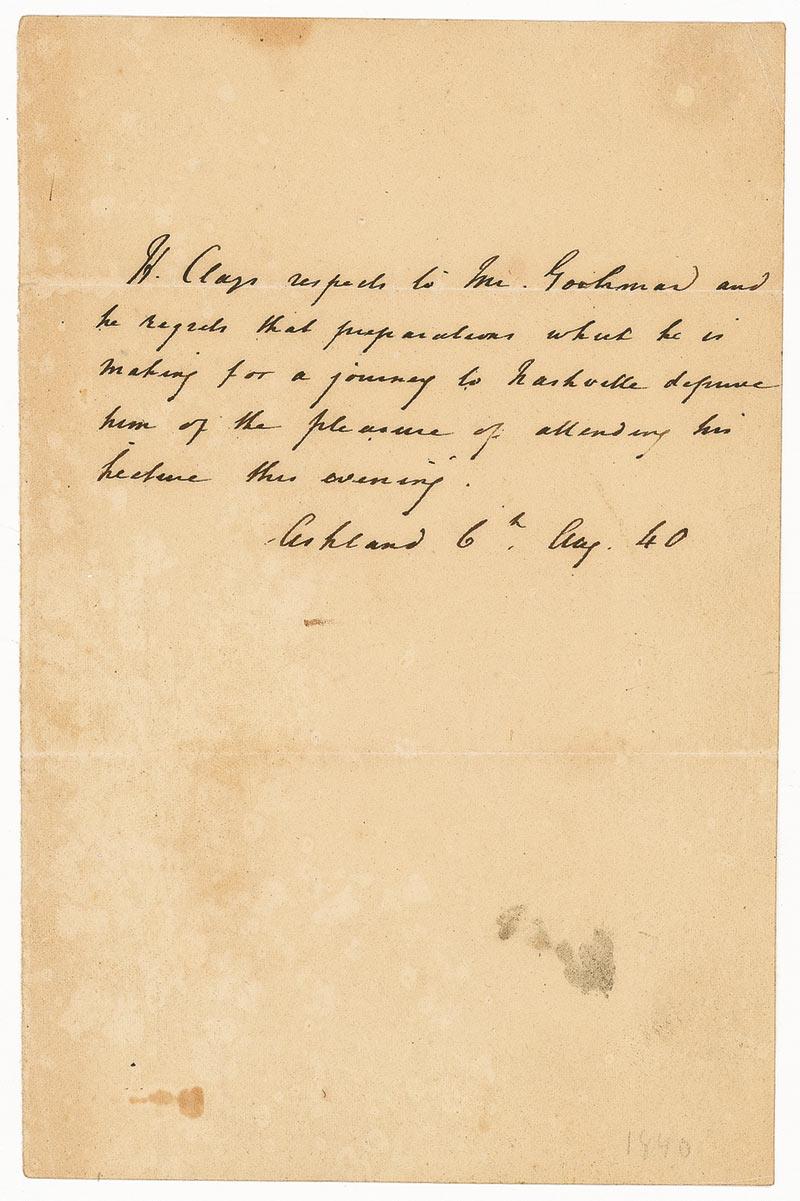 H. Clays respects to Mr. and
he regrets that preparations which he is
making for a journey to Nashville deprive
him of the pleasure of attending his
Lecture this evening.
Ashland 6th. Aug. 40
1840